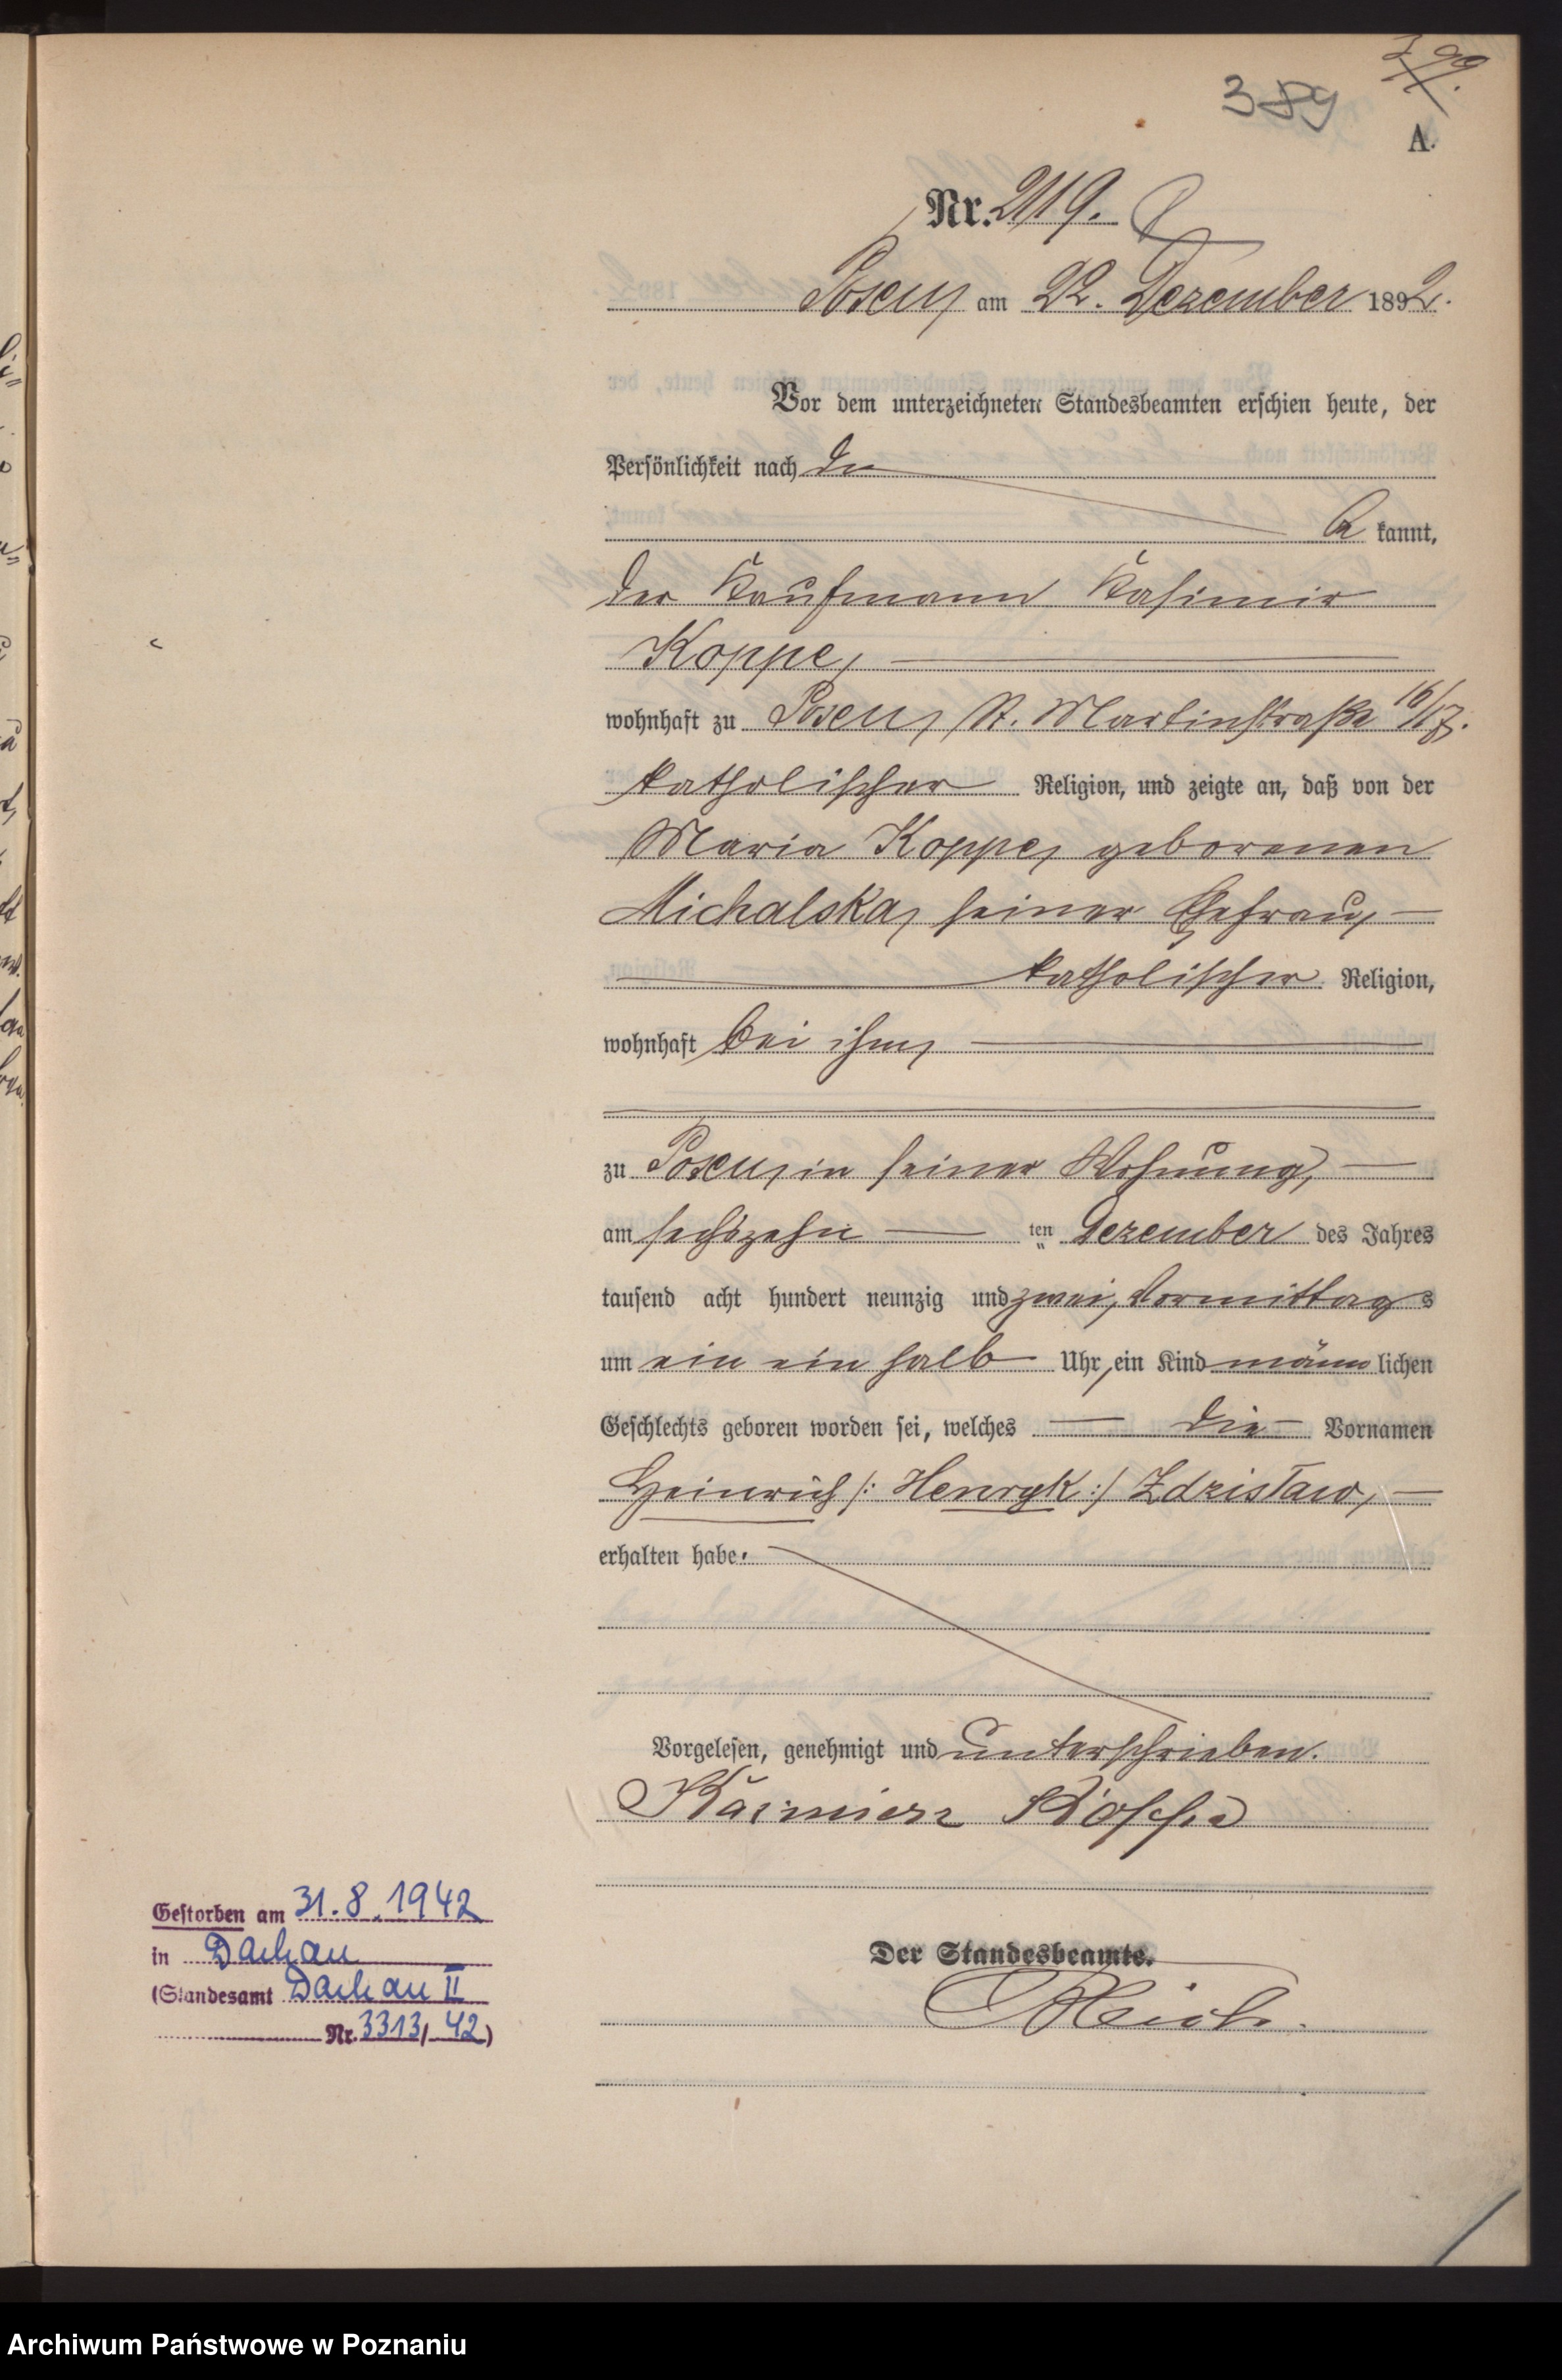 389
A.
Nr. 2119.
Posen, am 22. Dezember 1892.
Vor dem unterzeichneten Standesbeamten erschien heute, der
Persönlichkeit nach
be kannt,
der Kaufmann Kasimir
Koppe,
wohnhaft zu Posen, St. Martinstraße 16/17.
katholischer Religion, und zeigte an, daß von der
Maria Koppe, geborenen
Michalska, seiner Ehefrau,
katholischer Religion,
wohnhaft bei ihm,
zu Posen, in seiner Wohnung,
am sechszehn ten Dezember des Jahres
tausend acht hundert neunzig und zwei, Vormittags
um ein ein halb Uhr, ein Kind männlichen
Geschlechts geboren worden sei, welches die Vornamen
Heinrich /: Henryk :/ Zdzisław,
erhalten habe.
Vorgelesen, genehmigt und unterschrieben.
Kazimierz Koppe
Der Standesbeamte.
Gestorben am 31.8.1942
in Dachau
(Standesamt Dachau II
Nr. 3313/42)
Archiwum Państwowe w Poznaniu